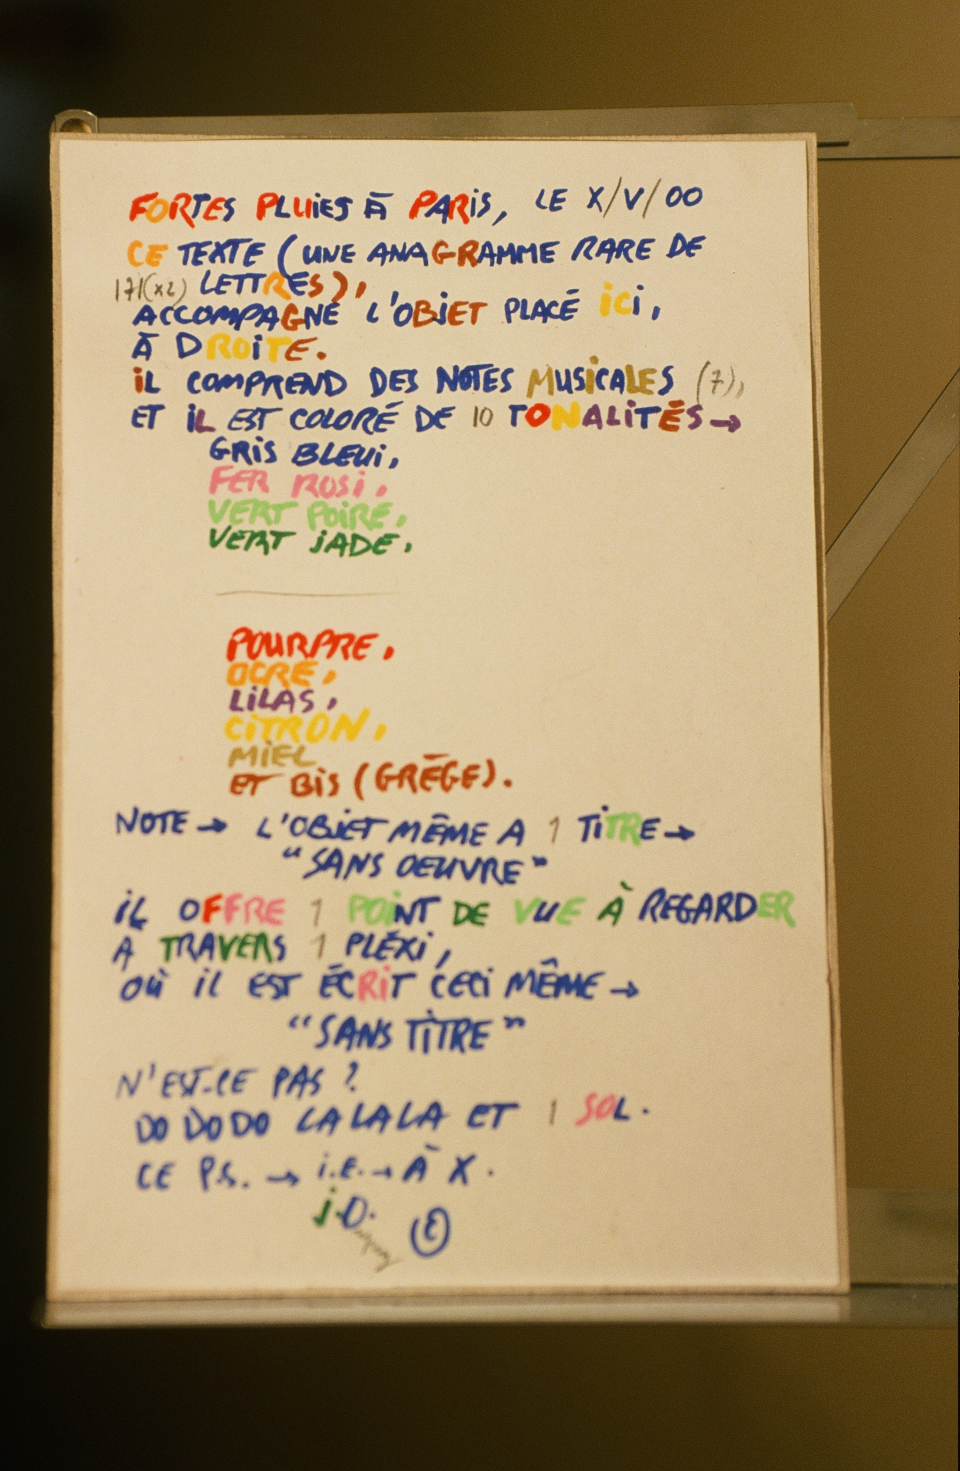 FORTES PLUIES À PARIS, LE X/V/00
CE TEXTE (UNE ANAGRAMME RARE DE
171(x2) LETTRES),
ACCOMPAGNE L'OBJET PLACÉ ICI,
À DROITE.
IL COMPREND DES NOTES MUSICALES (7),
ET IL EST COLORÉ DE 10 TONALITÉS→
GRIS BLEUI,
FER ROSI,
VERT POIRE,
VERT JADE,
POURPRE,
OCRE,
LILAS,
CITRON,
MIEL
ET BIS (GRÈGE).
NOTE → L'OBJET MÊME A 1 TITRE→
"SANS OEUVRE"
IL OFFRE 1 POINT DE VUE À REGARDER
À TRAVERS 1 PLÉXI,
OÙ IL EST ÉCRIT CECI MÊME→
"SANS TITRE"
N'EST-CE PAS ?
DO DO DO LA LA LA ET 1 SOL.
CE P.S. → I.E. → À X.
J.D.